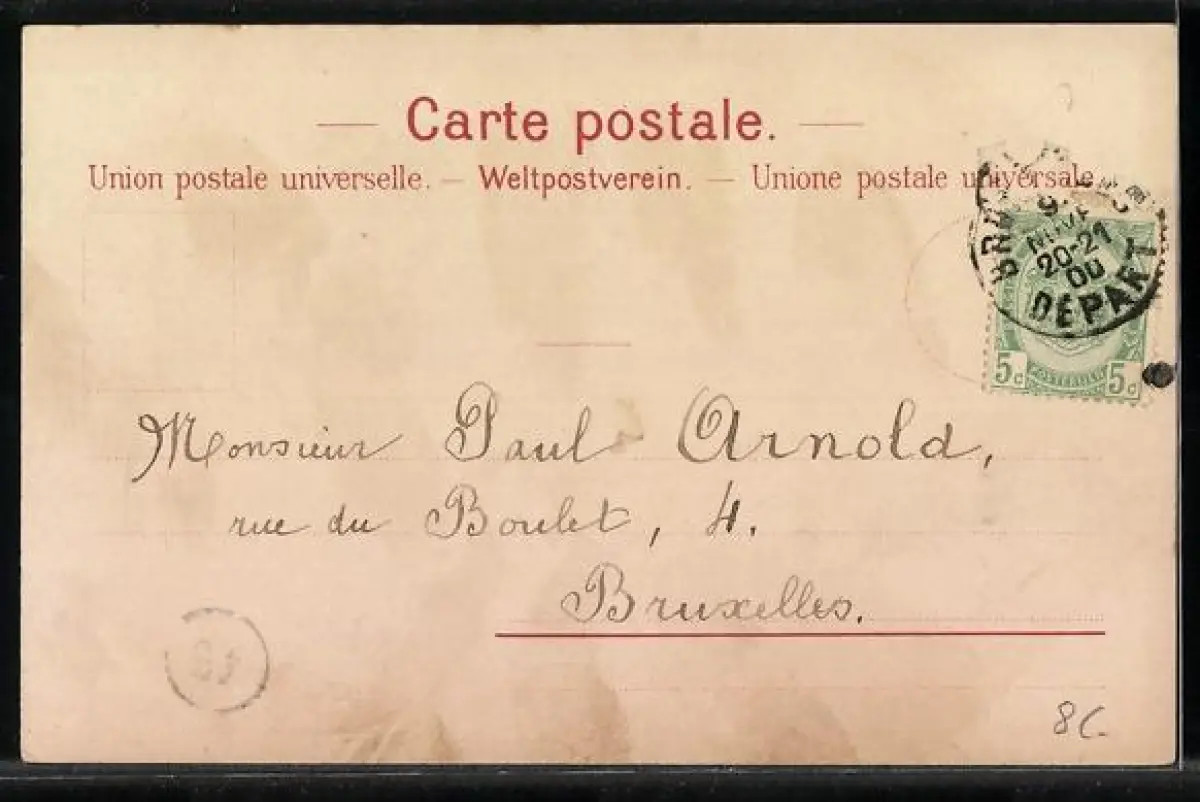 Carte postale.
Union postale universelle. — Weltpostverein. — Unione postale universale.
20-21
00
DÉPART
5c 5c
Monsieur Paul Arnold,
rue du Boulet, 4.
Bruxelles.